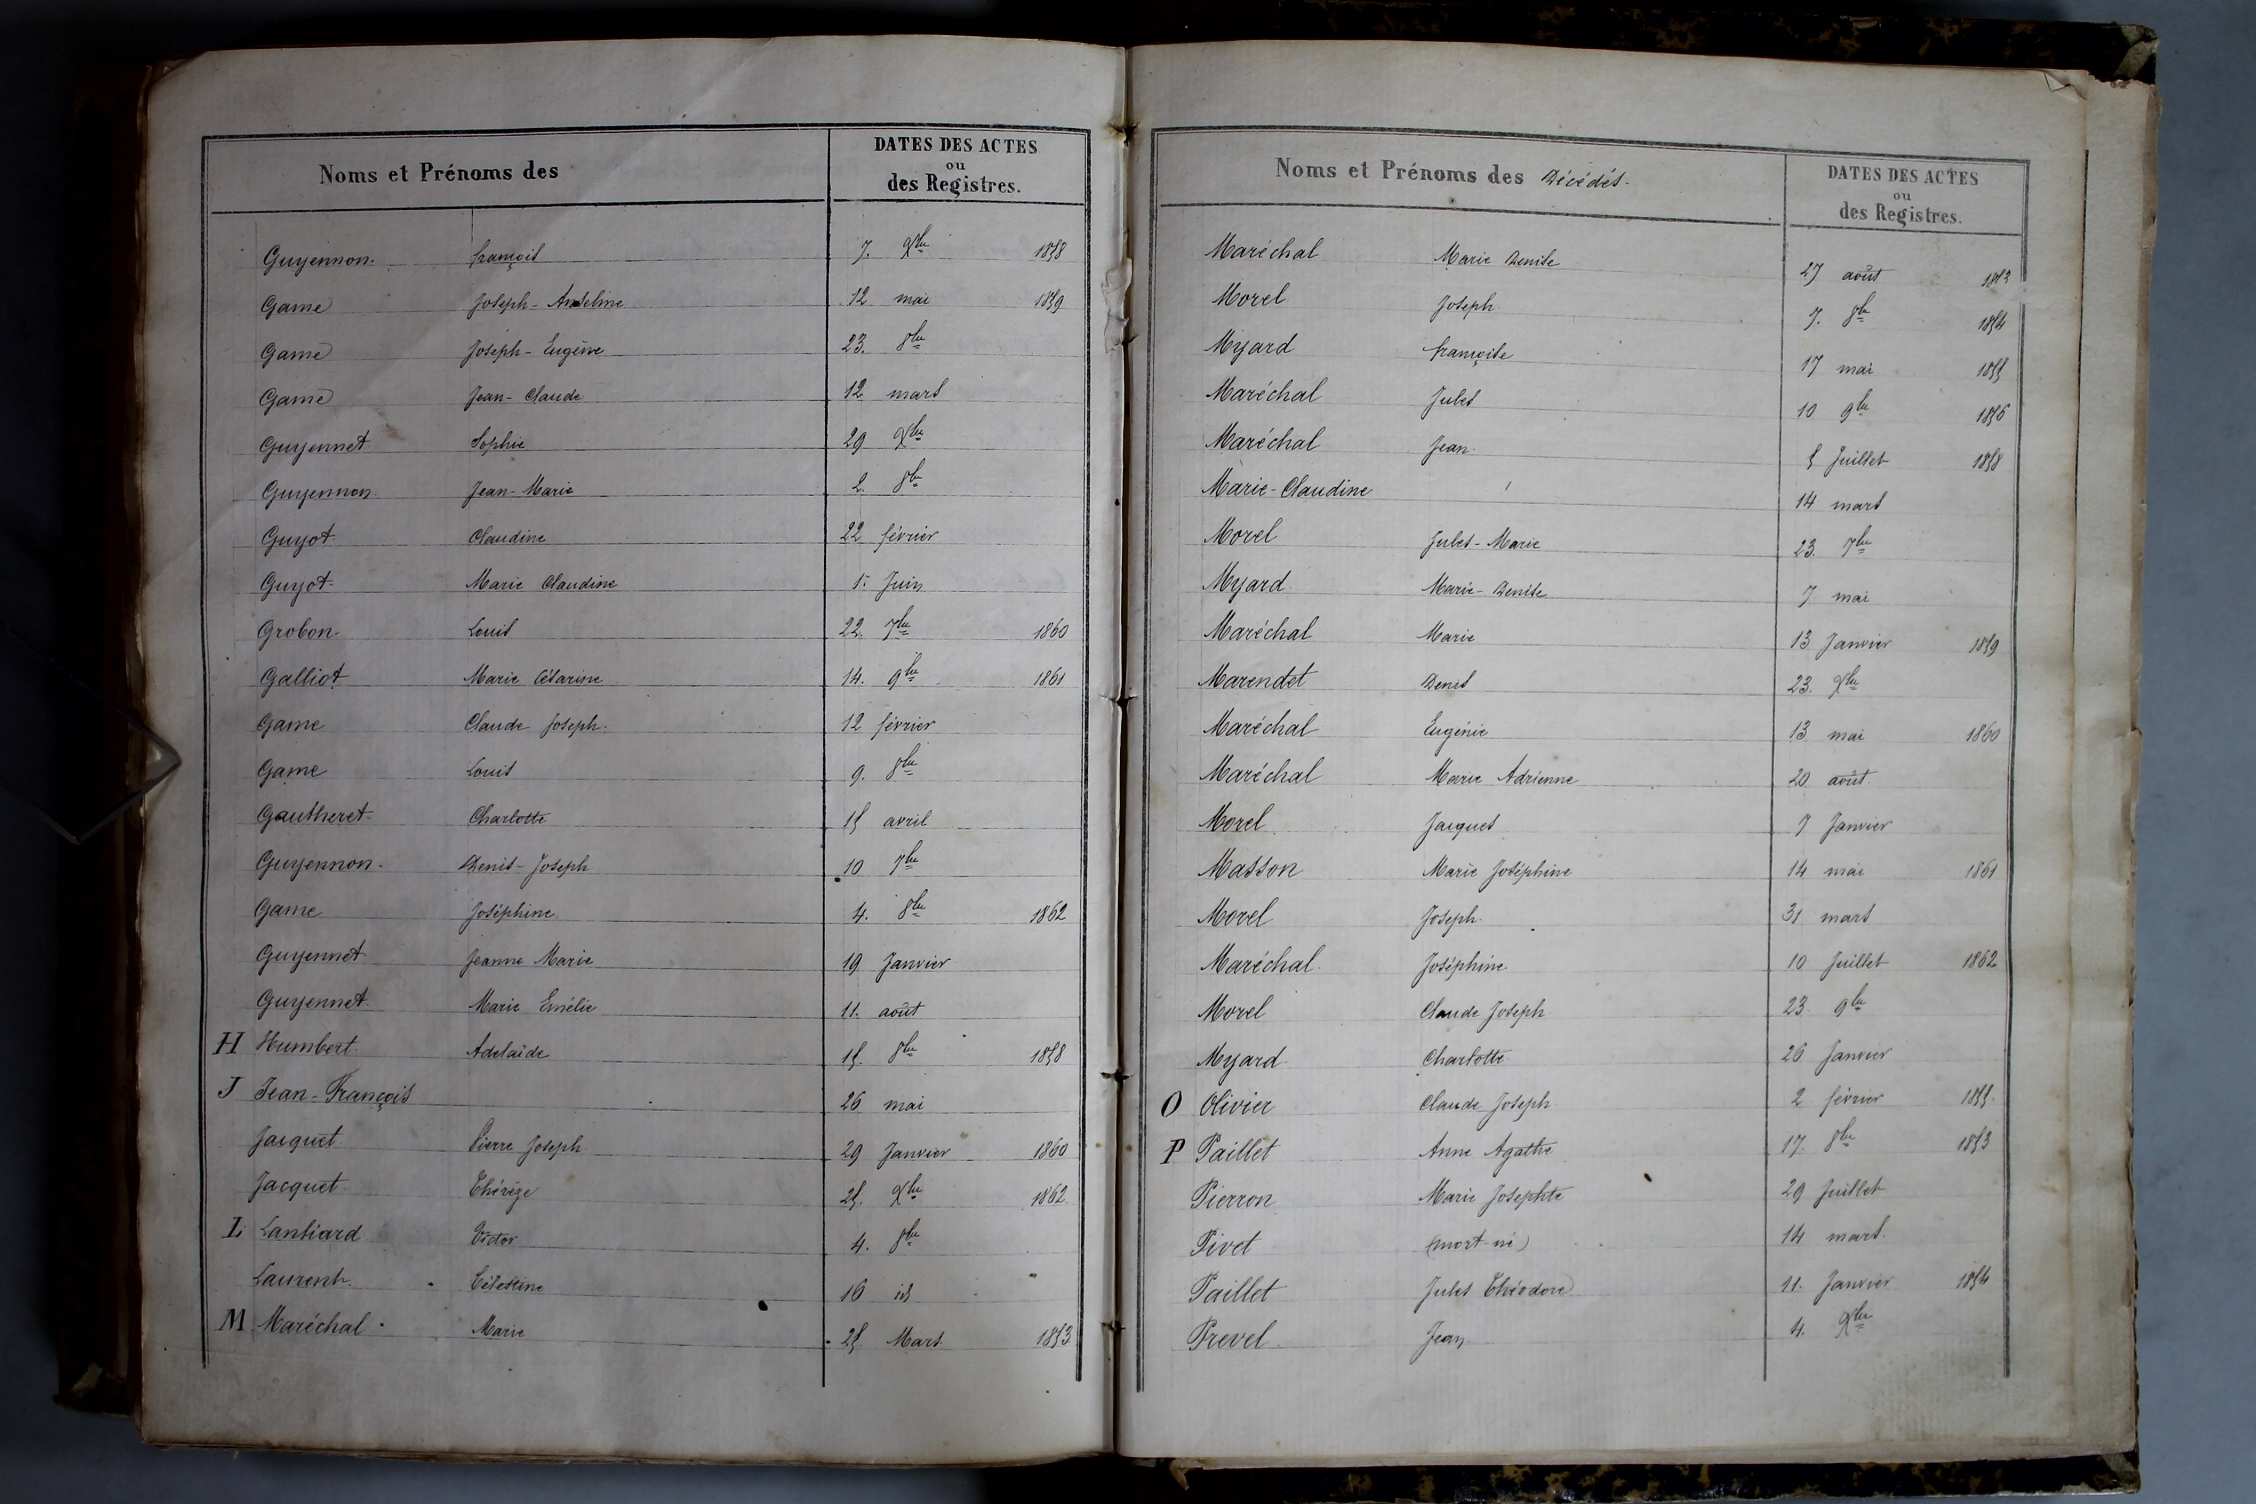 Noms et Prénoms des
DATES DES ACTES
ou
des Registres.
Guyennon françois 7. Xbre 1858
Game Joseph-Anselme 12 mai 1859
Game Joseph-Eugène 23. 8bre
Game Jean-Claude 12 mars
Guyennet Sophie 29 Xbre
Guyennon Jean-Marie 2. 8bre
Guyot Claudine 22 février
Guyot Marie Claudine 1er Juin
Grobon Louis 22. 7bre 1860
Galliot Marie Césarine 14. 9bre 1861
Game Claude Joseph 12 février
Game Louis 9. 8bre
Gautheret Charlotte 15 avril
Guyennon Denis-Joseph 10 7bre
Game Joséphine 4. 8bre 1862
Guyennet Jeanne Marie 19 Janvier
Guyennet Marie Emélie 11. août
H Humbert Adelaïde 15. 8bre 1858
J Jean-François 26 mai
Jacquet Pierre Joseph 29 Janvier 1860
Jacquet Thérèze 25. Xbre 1862
L Lansiard Victor 4. 8bre
Laurent Célestine 16 id
M Maréchal Marie 25 Mars 1853
Noms et Prénoms des Décédés.
DATES DES ACTES
ou
des Registres.
Maréchal Marie Denise 27 août 1853
Morel Joseph 7. 8bre 1854
Myard françoise 17 mai 1855
Maréchal Jules 10 9bre 1856
Maréchal Jean 5 Juillet 1858
Marie-Claudine 14 mars
Morel Jules-Marie 23. 7bre
Myard Marie-Denise 7 mai
Maréchal Marie 13 Janvier 1859
Marendet Denis 23. Xbre
Maréchal Eugénie 13 mai 1860
Maréchal Marie Adrienne 20 août
Morel Jacques 7 Janvier
Masson Marie Joséphine 14 mai 1861
Morel Joseph 31 mars
Maréchal Joséphine 10 Juillet 1862
Morel Claude Joseph 23 9bre
Myard Charlotte 26 Janvier
O Olivier Claude Joseph 2 février 1855
P Paillet Anne Agathe 17. 8bre 1853
Pierron Marie Josephte 29 Juillet
Pivet (mort-né) 14 mars
Paillet Jules Théodore 11. Janvier 1854
Prevel Jean 4. Xbre